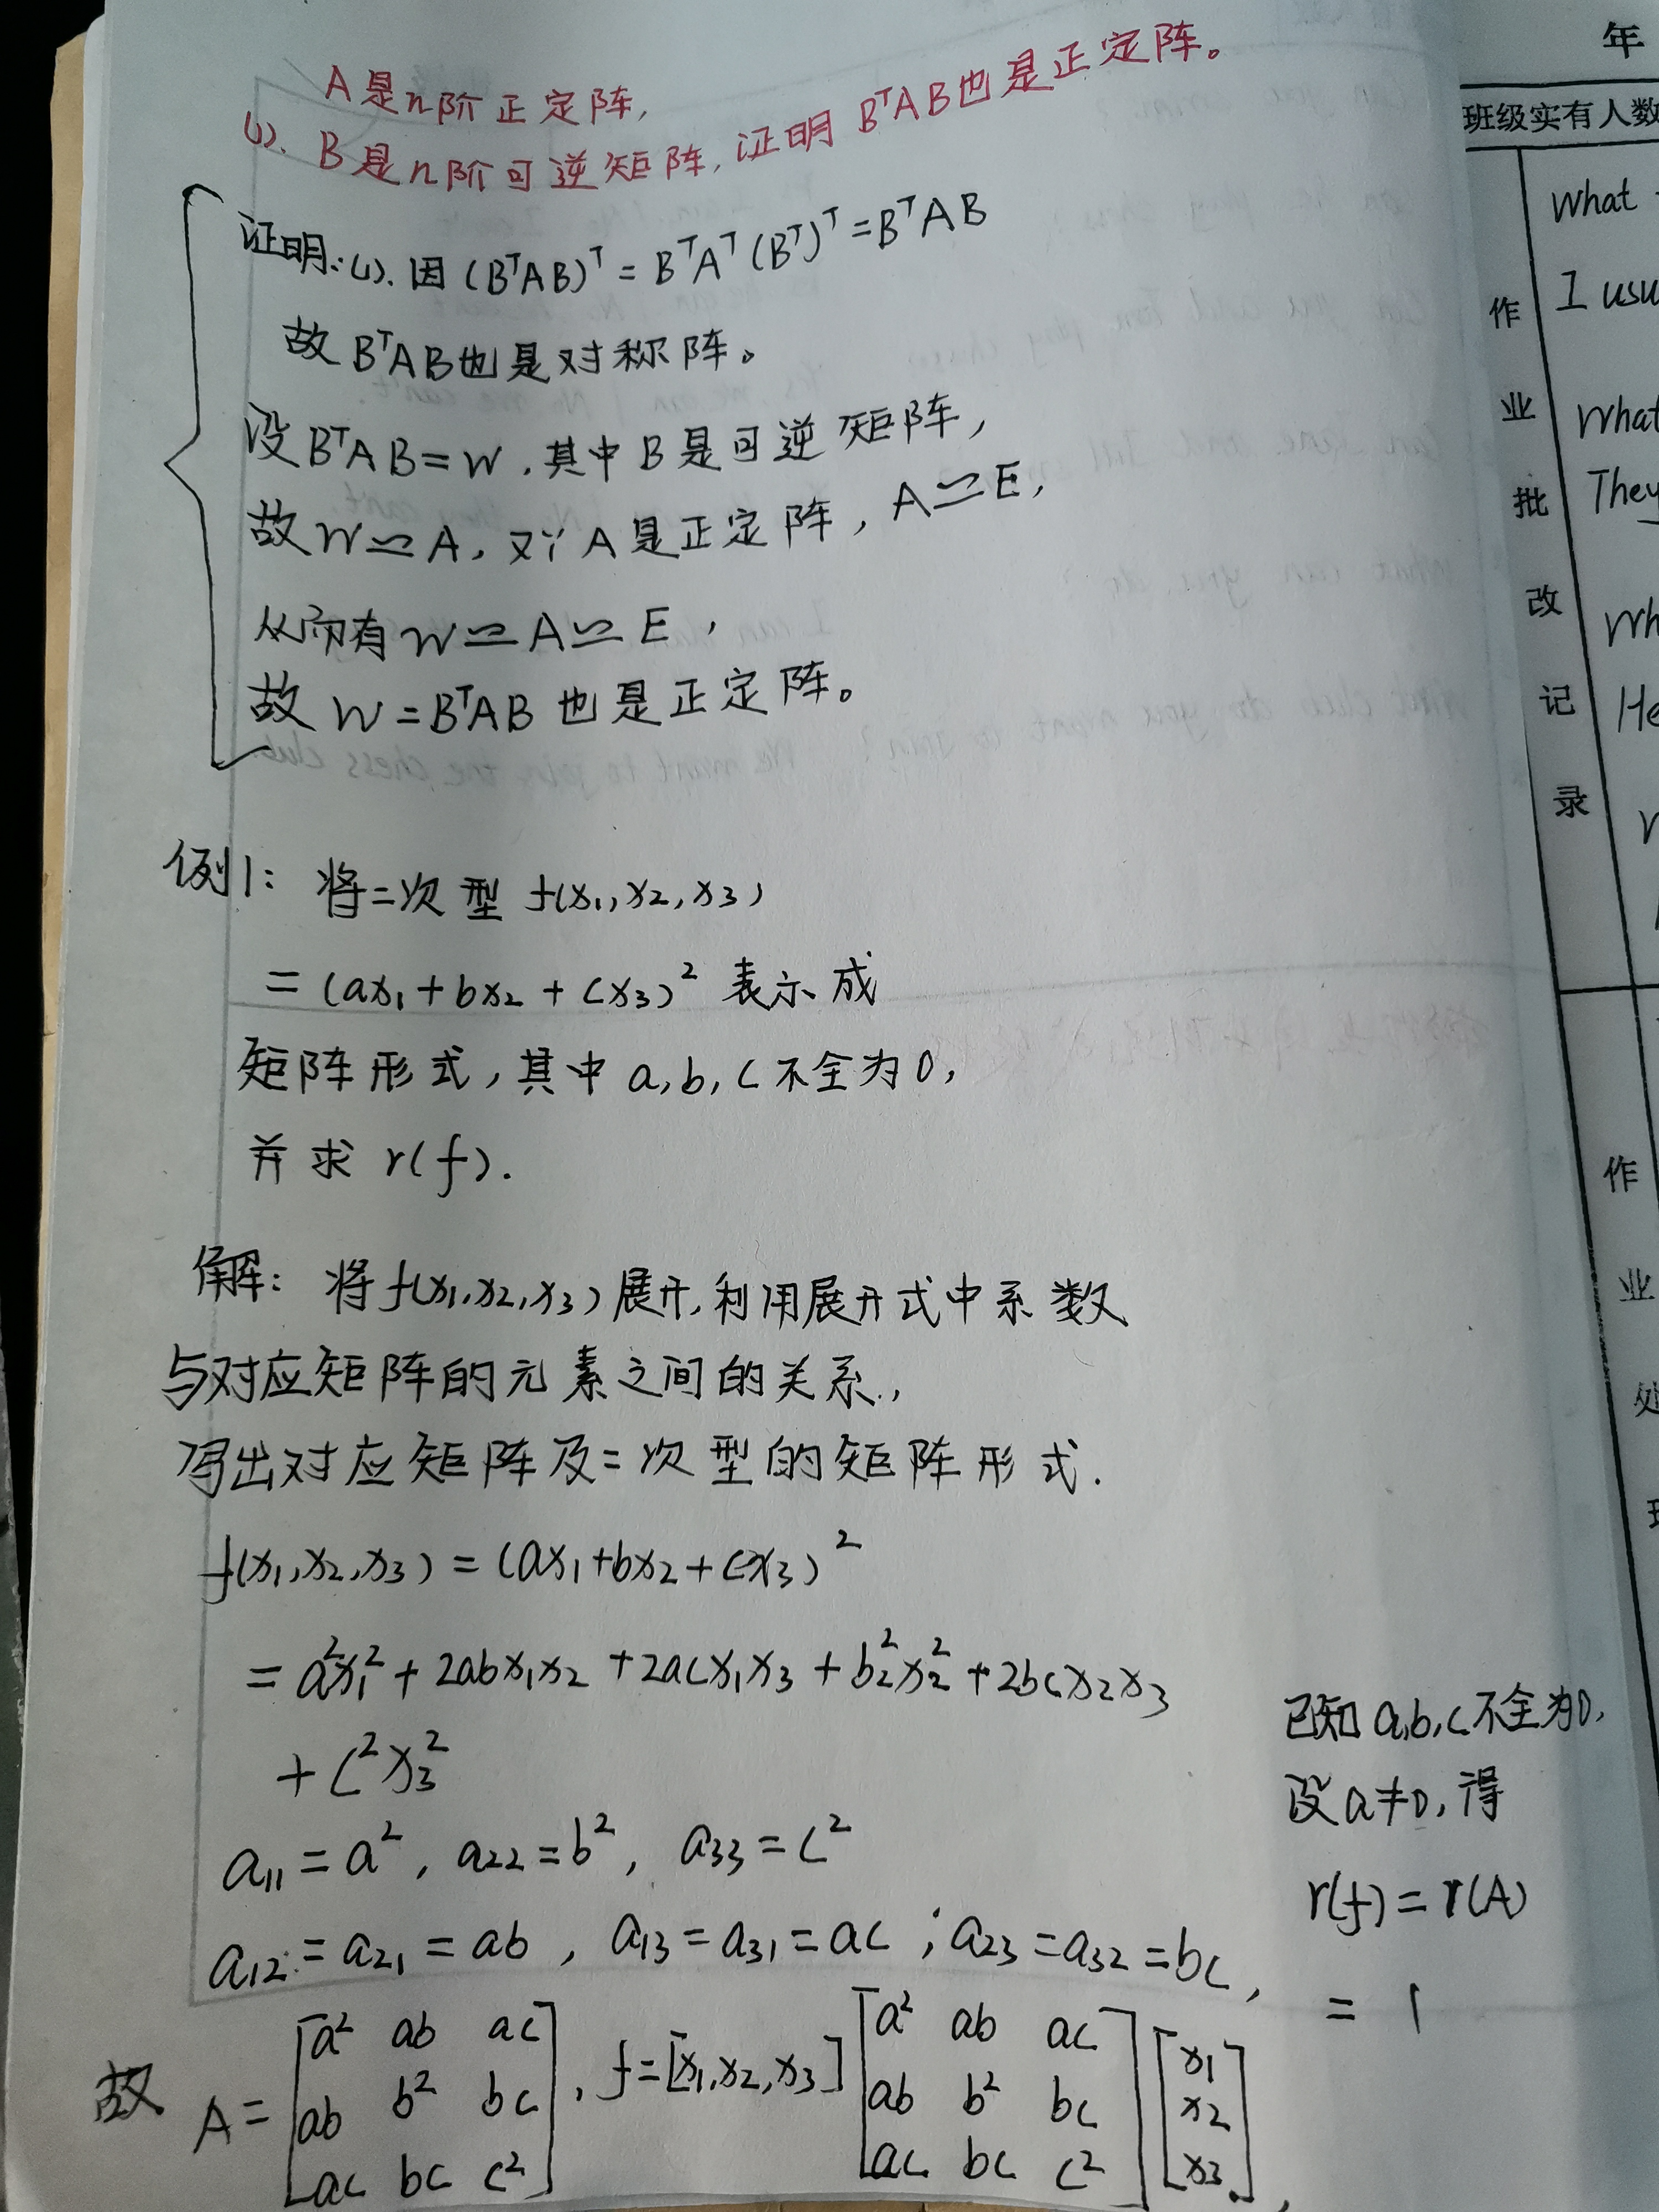 A是n阶正定阵,
(1). B是n阶可逆矩阵,证明 BᵀAB也是正定阵。
证明:(1). 因 (BᵀAB)ᵀ = BᵀAᵀ(Bᵀ)ᵀ = BᵀAB
故 BᵀAB也是对称阵。
设BᵀAB=W,其中B是可逆矩阵,
故W≃A,又∵A是正定阵,A≃E,
从而有W≃A≃E,
故 W=BᵀAB也是正定阵。
例1: 将二次型 f(x₁,x₂,x₃)
=(ax₁+bx₂+cx₃)² 表示成
矩阵形式,其中a,b,c不全为0,
并求 r(f).
解: 将f(x₁,x₂,x₃)展开,利用展开式中系数
与对应矩阵的元素之间的关系,
写出对应矩阵及二次型的矩阵形式.
f(x₁,x₂,x₃)=(ax₁+bx₂+cx₃)²
=a²x₁²+2abx₁x₂+2acx₁x₃+b₂²x₂²+2bcx₂x₃
+c²x₃²
a₁₁=a², a₂₂=b², a₃₃=c²
a₁₂=a₂₁=ab, a₁₃=a₃₁=ac; a₂₃=a₃₂=bc,
故 A=[a² ab ac
ab b² bc
ac bc c²], f=[x₁,x₂,x₃][a² ab ac
ab b² bc
ac bc c²][x₁
x₂
x₃],
已知a,b,c不全为0,
设a≠0,得
r(f)=r(A)
=1
年
班级实有人数
作业批改记录
What
I usu
What
They
Wh
He
作
业
处